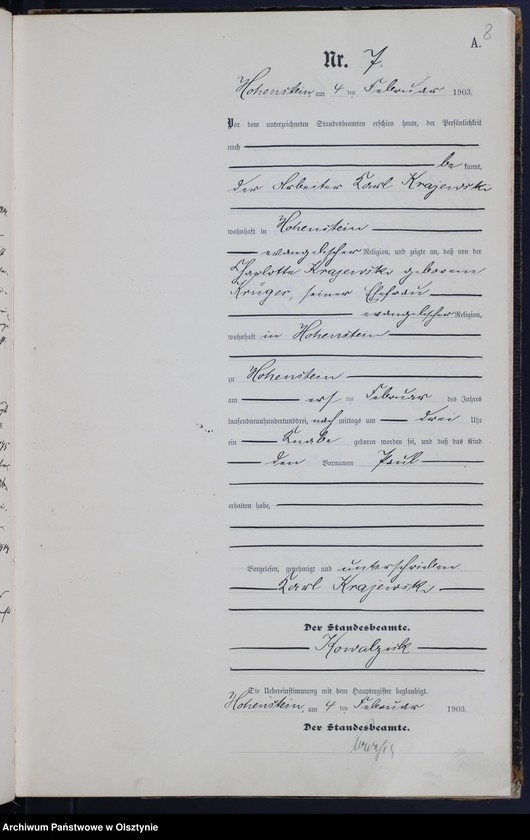 A. 8
Nr. 7.
Hohenstein, am 4 ten Februar 1903.
Vor dem unterzeichneten Standesbeamten erschien heute, der Persönlichkeit
nach
be kannt,
der Arbeiter Karl Krajewski
wohnhaft in Hohenstein
evangelischer Religion, und zeigte an, daß von der
Charlotte Krajewski geborene
Krüger, seiner Ehefrau
evangelischer Religion,
wohnhaft in Hohenstein
zu Hohenstein
am ersten Februar des Jahres
tausendneunhundertunddrei, nach mittags um drei Uhr
ein Knabe geboren worden sei, und daß das Kind
den Vornamen Paul
erhalten habe,
Vorgelesen, genehmigt und unterschrieben
Karl Krajewski
Der Standesbeamte.
Kowalzik
Die Uebereinstimmung mit dem Hauptregister beglaubigt.
Hohenstein, am 4 ten Februar 1903.
Der Standesbeamte.
Archiwum Państwowe w Olsztynie